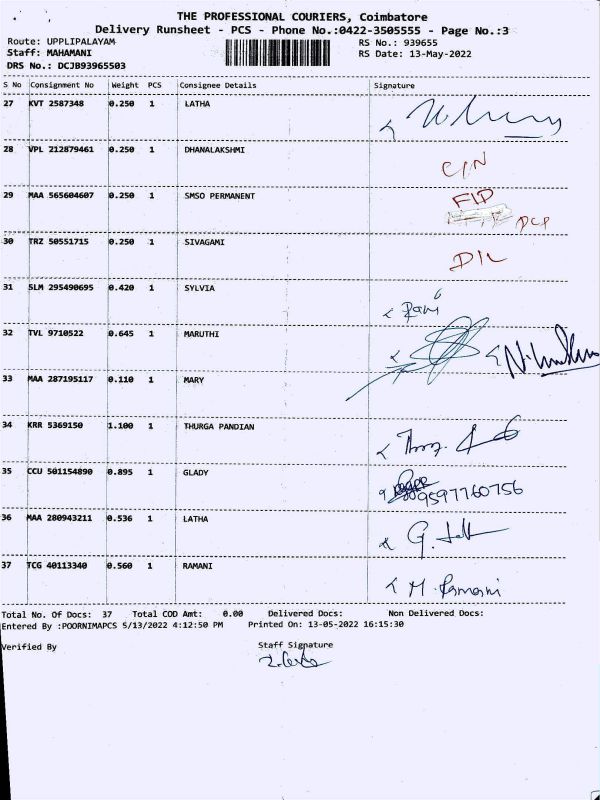 THE PROFESSIONAL COURIERS, Coimbatore
Delivery Runsheet - PCS - Phone No.:0422-3505555 - Page No.:3
Route: UPPLIPALAYAM
RS No.: 939655
Staff: MAHAMANI
RS Date: 13-May-2022
DRS No.: DCJB93965503
S No Consignment No Weight PCS Consignee Details Signature
27 KVT 2587348 0.250 1 LATHA
28 VPL 212879461 0.250 1 DHANALAKSHMI
29 MAA 565604607 0.250 1 SMSO PERMANENT
30 TRZ 50551715 0.250 1 SIVAGAMI D/L
31 SLM 295490695 0.420 1 SYLVIA Rani
32 TVL 9710522 0.645 1 MARUTHI
33 MAA 287195117 0.110 1 MARY
34 KRR 5369150 1.100 1 THURGA PANDIAN
35 CCU 501154890 0.895 1 GLADY 9597760756
36 MAA 280943211 0.536 1 LATHA
37 TCG 40113340 0.560 1 RAMANI M. Ramani
Total No. Of Docs: 37 Total COD Amt: 0.00 Delivered Docs: Non Delivered Docs:
Entered By :POORNIMAPCS 5/13/2022 4:12:50 PM Printed On: 13-05-2022 16:15:30
Verified By Staff Signature